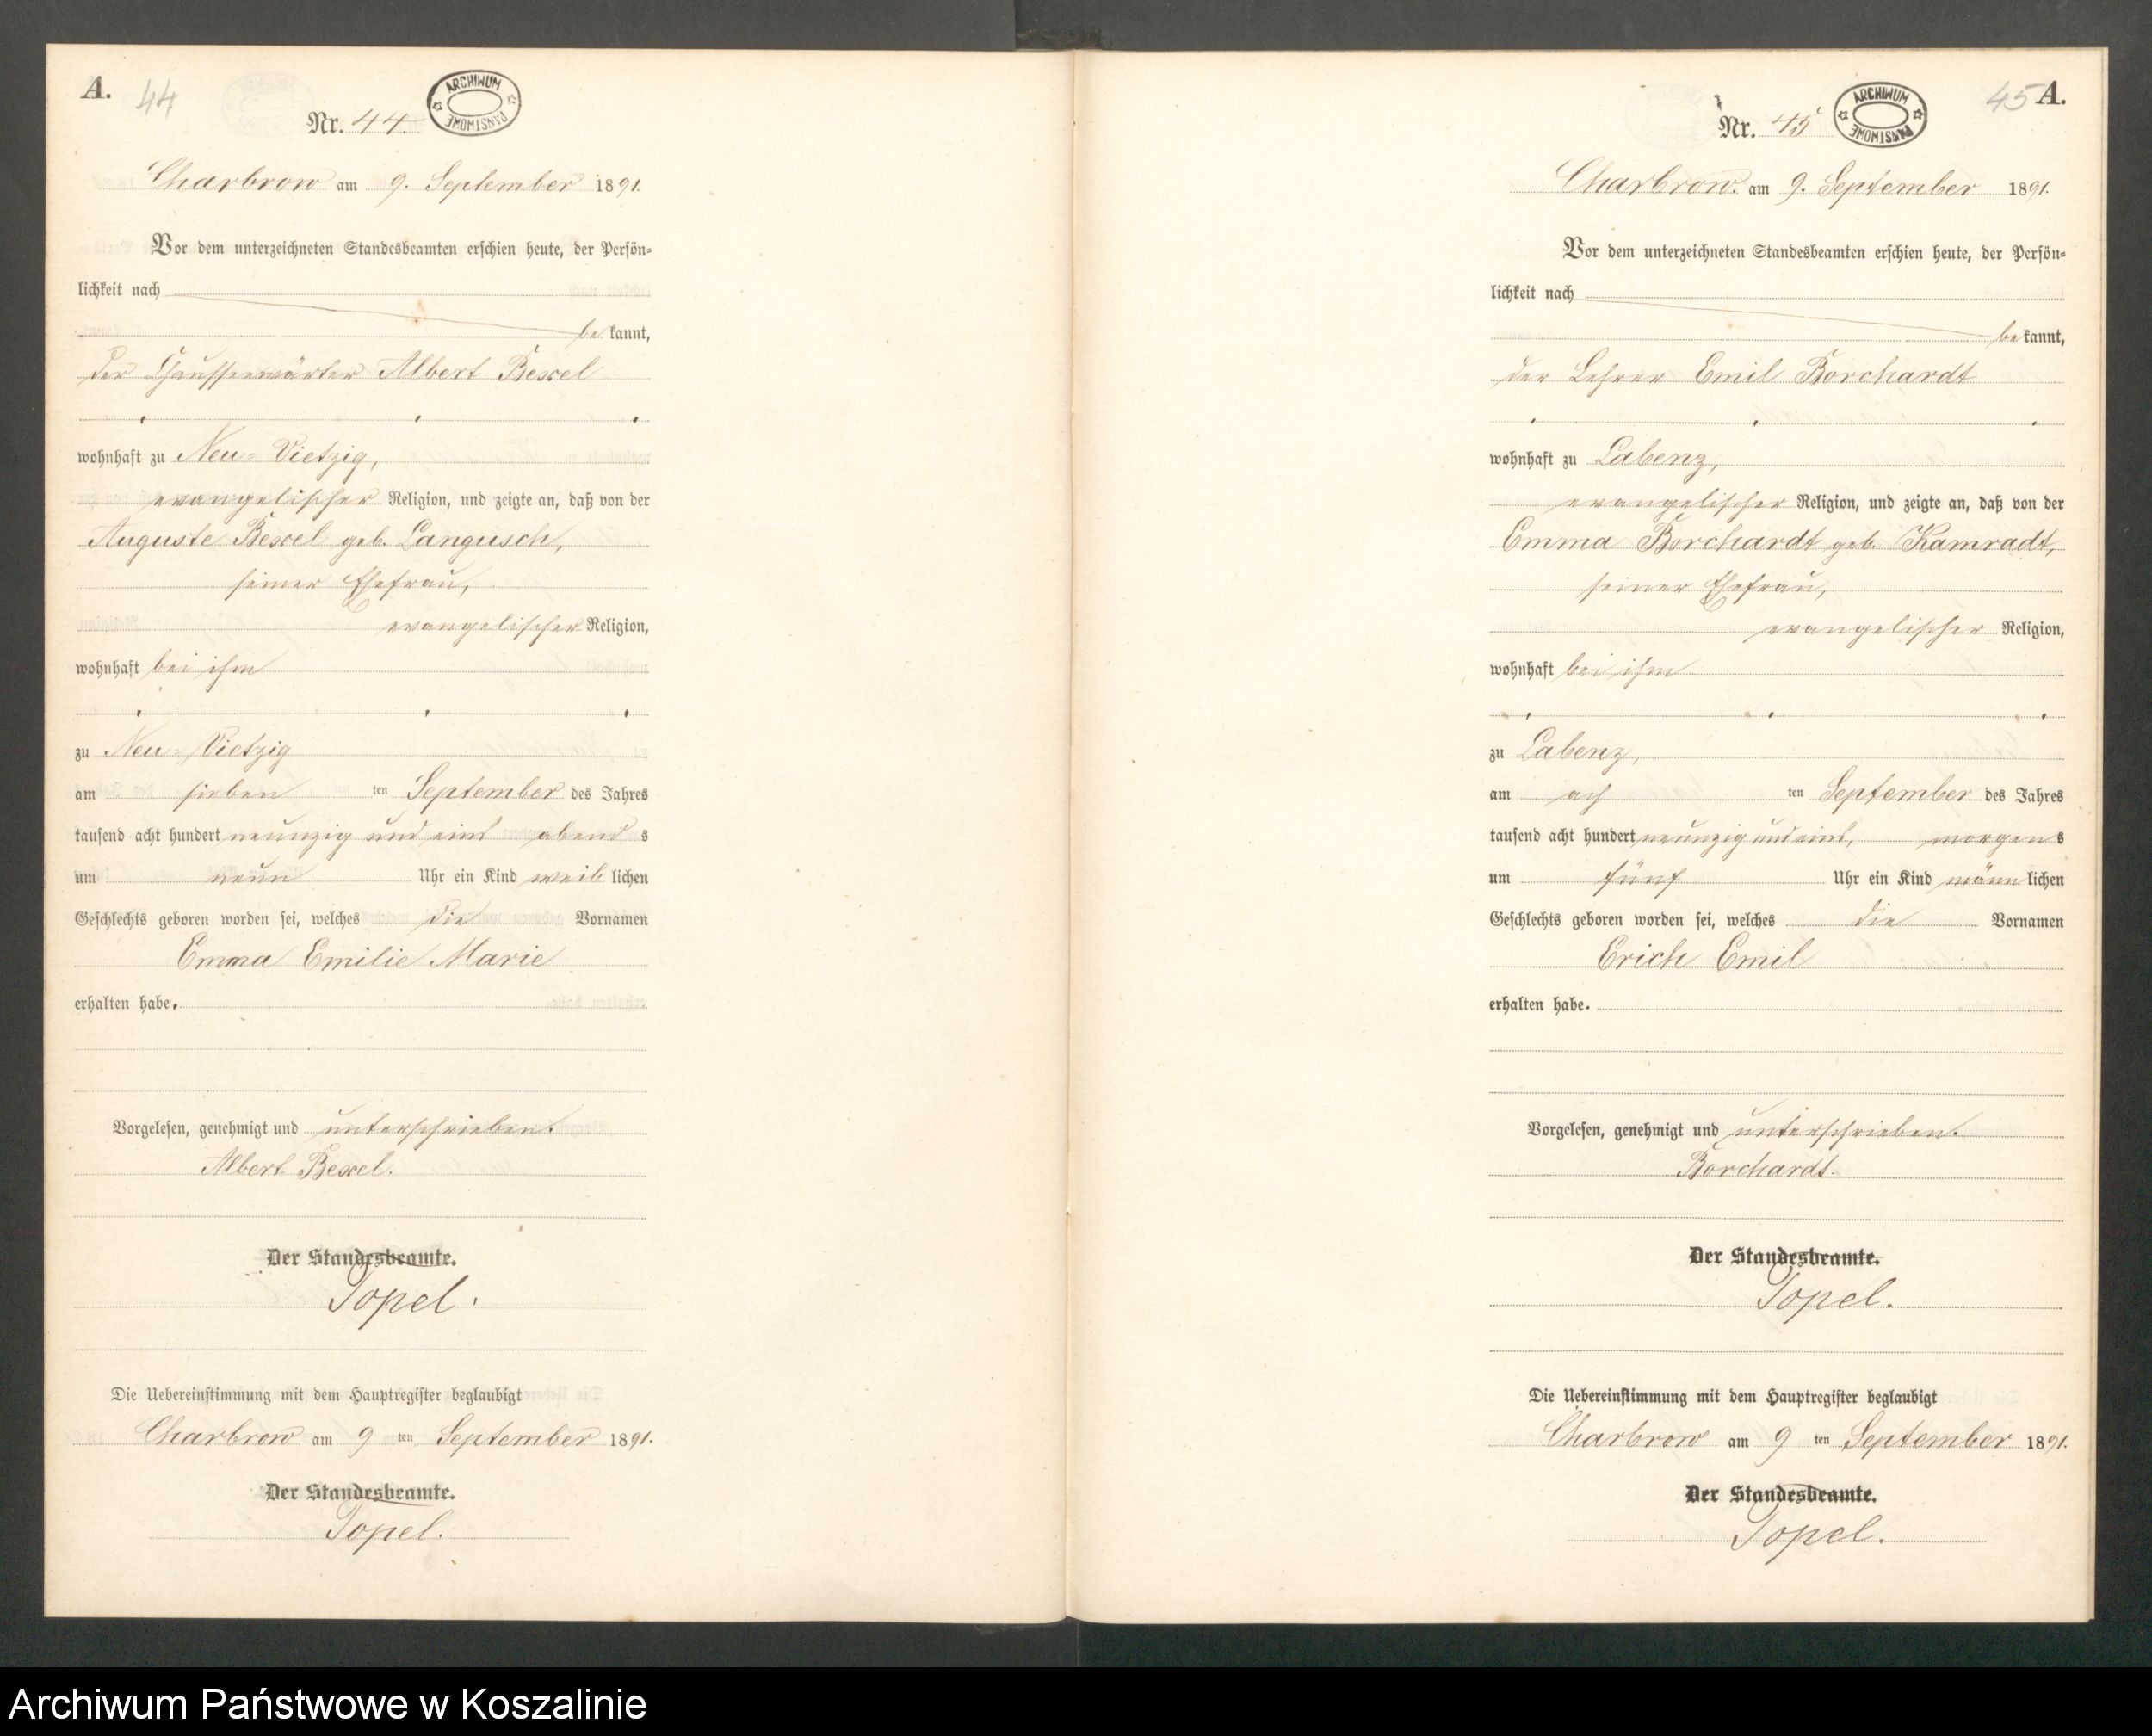 A. 44
Nr. 44.
ARCHIWUM PAŃSTWOWE
Charbrow am 9. September 1891.
Vor dem unterzeichneten Standesbeamten erschien heute, der Persön-
lichkeit nach
bekannt,
der Chausseewärter Albert Bexel
wohnhaft zu Neu-Vietzig,
evangelischer Religion, und zeigte an, daß von der
Auguste Bexel geb. Langusch,
seiner Ehefrau,
evangelischer Religion,
wohnhaft bei ihm
zu Neu-Vietzig
am sieben ten September des Jahres
tausend acht hundert neunzig und eins abends
um neun Uhr ein Kind weiblichen
Geschlechts geboren worden sei, welches die Vornamen
Emma Emilie Marie
erhalten habe.
Vorgelesen, genehmigt und unterschrieben.
Albert Bexel.
Der Standesbeamte.
Topel.
Die Uebereinstimmung mit dem Hauptregister beglaubigt
Charbrow am 9 ten September 1891.
Der Standesbeamte.
Topel.
45 A.
Nr. 45
ARCHIWUM PAŃSTWOWE
Charbrow. am 9. September 1891.
Vor dem unterzeichneten Standesbeamten erschien heute, der Persön-
lichkeit nach
bekannt,
der Lehrer Emil Borchardt
wohnhaft zu Labenz,
evangelischer Religion, und zeigte an, daß von der
Emma Borchardt geb. Kamradt,
seiner Ehefrau,
evangelischer Religion,
wohnhaft bei ihm
zu Labenz,
am ach ten September des Jahres
tausend acht hundert neunzig und eins, morgens
um fünf Uhr ein Kind männlichen
Geschlechts geboren worden sei, welches die Vornamen
Erich Emil
erhalten habe.
Vorgelesen, genehmigt und unterschrieben.
Borchardt.
Der Standesbeamte.
Topel.
Die Uebereinstimmung mit dem Hauptregister beglaubigt
Charbrow am 9 ten September 1891.
Der Standesbeamte.
Topel.
Archiwum Państwowe w Koszalinie